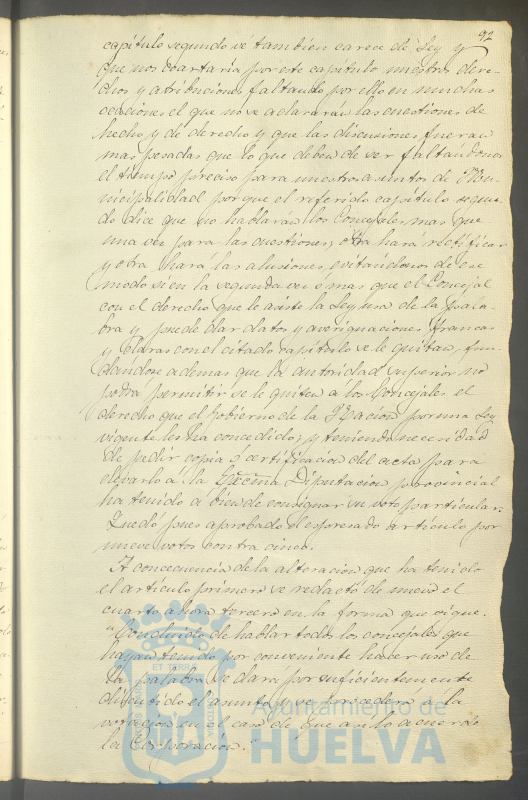 92
capítulo segundo se tambien carece de Ley y
que nos coartaría por este capítulo nuestros dere-
chos y atribuciones faltando por ello en muchas
ocaciones el que no se aclararán las cuestiones de
hecho y de derecho y que las discusiones fueran
mas pesadas que lo que deben de ser faltandonos
el tiempo preciso para nuestros asuntos de Mu-
nicipalidad porque el referido capítulo segun-
do dice que no hablarán los Concejales mas que
una vez para las cuestiones, otra hará rectificar
y otra hará las alusiones, evitandonos de ese
modo si en la segunda vez ó mas que el Concejal
con el derecho que le asiste la Ley usa de la pala-
bra y puede dar datos y averiguaciones francas
y claras con el citado capítulo se le quitan, fun-
dandose ademas que la autoridad superior no
podrá permitir se le quiten á los Concejales el
derecho que el Gobierno de la Nacion por una Ley
vigente les ha concedido; y teniendo necesidad
de pedir copia ó certificacion del acta para
elevarlo á la Excma Diputacion provincial
ha tenido á bien de consignar su voto particular.
Quedó pues aprobado el espresado artículo por
nueve votos contra cinco.
A concecuencia de la alteracion que ha tenido
el artículo primero se redactó de nuevo el
cuarto ahora tercero en la forma que sigue.
"Concluido de hablar todos los concejales que
hayan tenido por conveniente hacer uso de
la palabra se dará por suficientemente
discutido el asunto y se procederá á la
votacion en el caso de que asi lo acuerde
la Corporacion."
ET TERRÆ
Ayuntamiento de
HUELVA